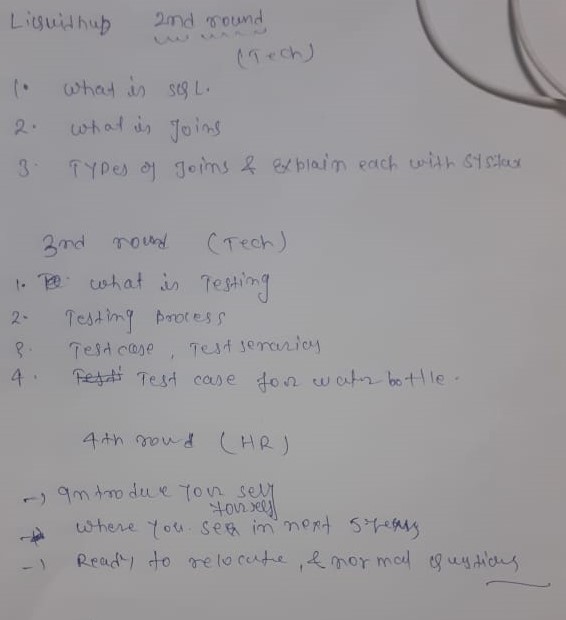 Liquidhub 2nd round
(Tech)
1. what is SQL.
2. what is Joins
3. Types of Joins & Explain each with systax
3nd round (Tech)
1. what is Testing
2. Testing process
3. Test case, Test senarios
4. Test case for water bottle.
4th round (HR)
→ Introduce your self
yourself
→ where you see in next 5 years
→ Ready to relocate, & normal questions